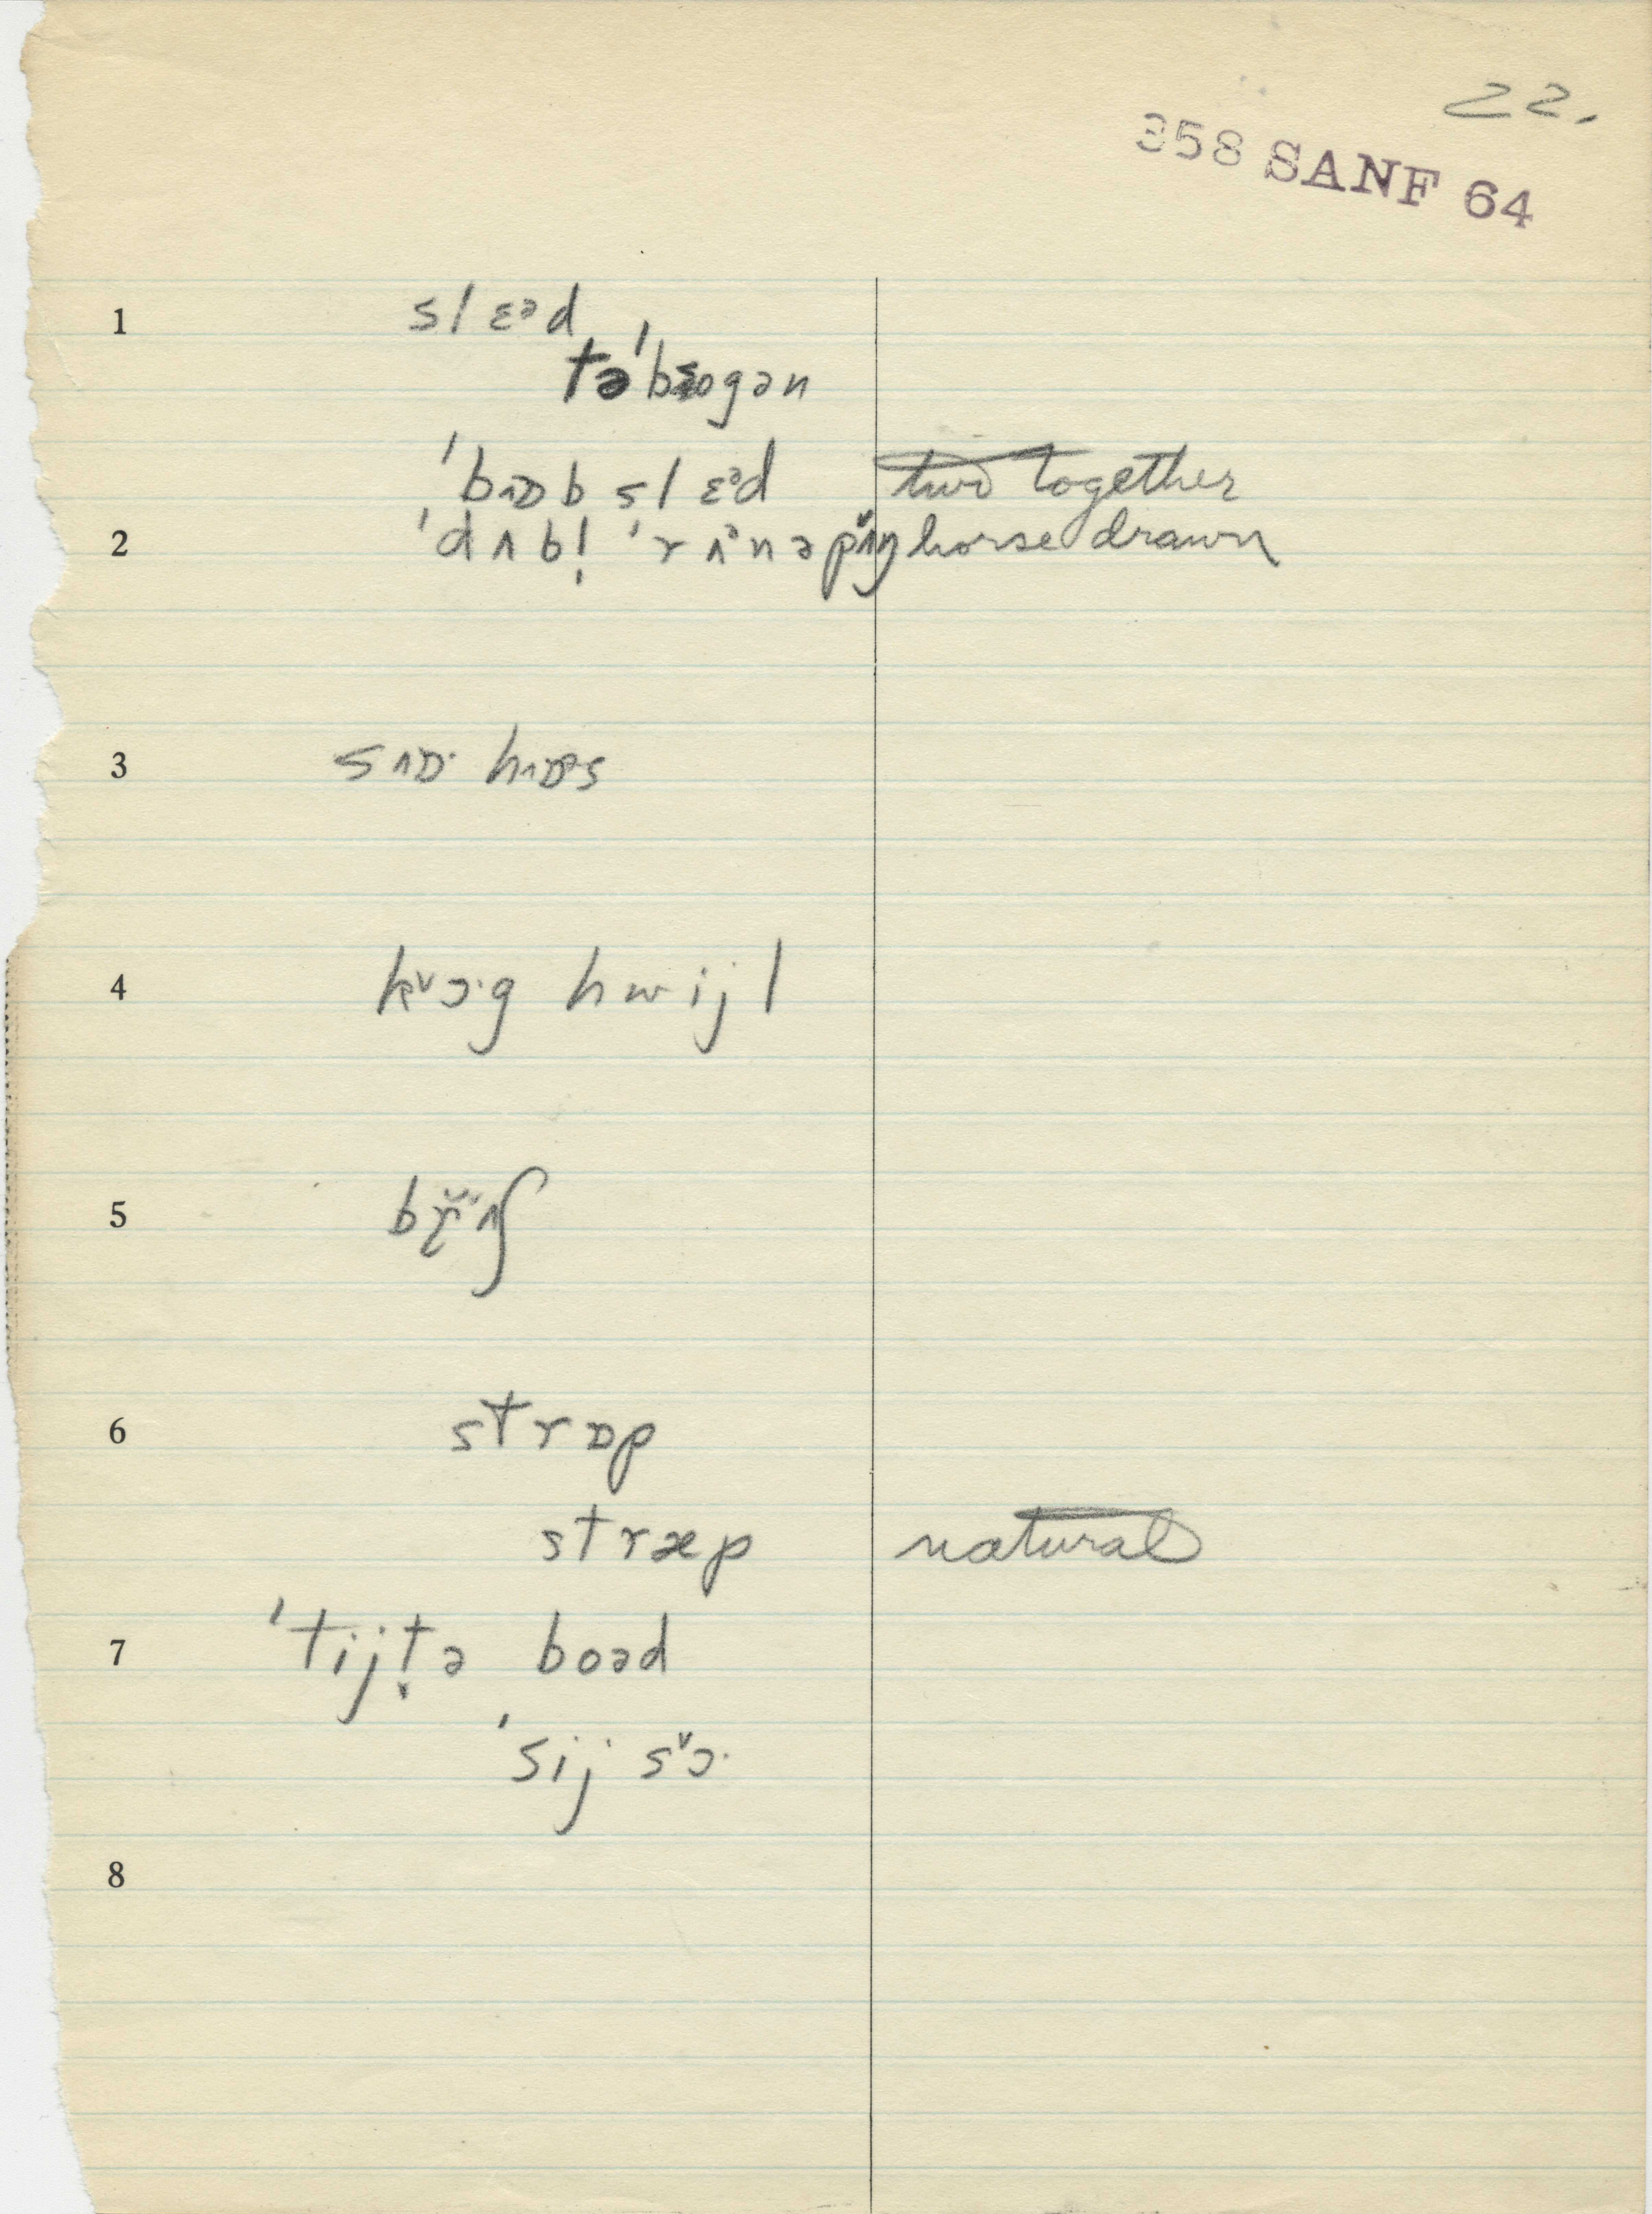 22.
358 SANF 64
1 slɛᵊd
təˈbogən
ˈbɒb slɛᵊd two together
2 ˈdʌbl̩ ˈrʌᵊnəpɪŋ horse drawn
3 sɒ· hɒs
4 kɔ·g hwijl
5
6 strɒp
stræp natural
7 ˈtijt̬ə boəd
ˈsij sɔ·
8